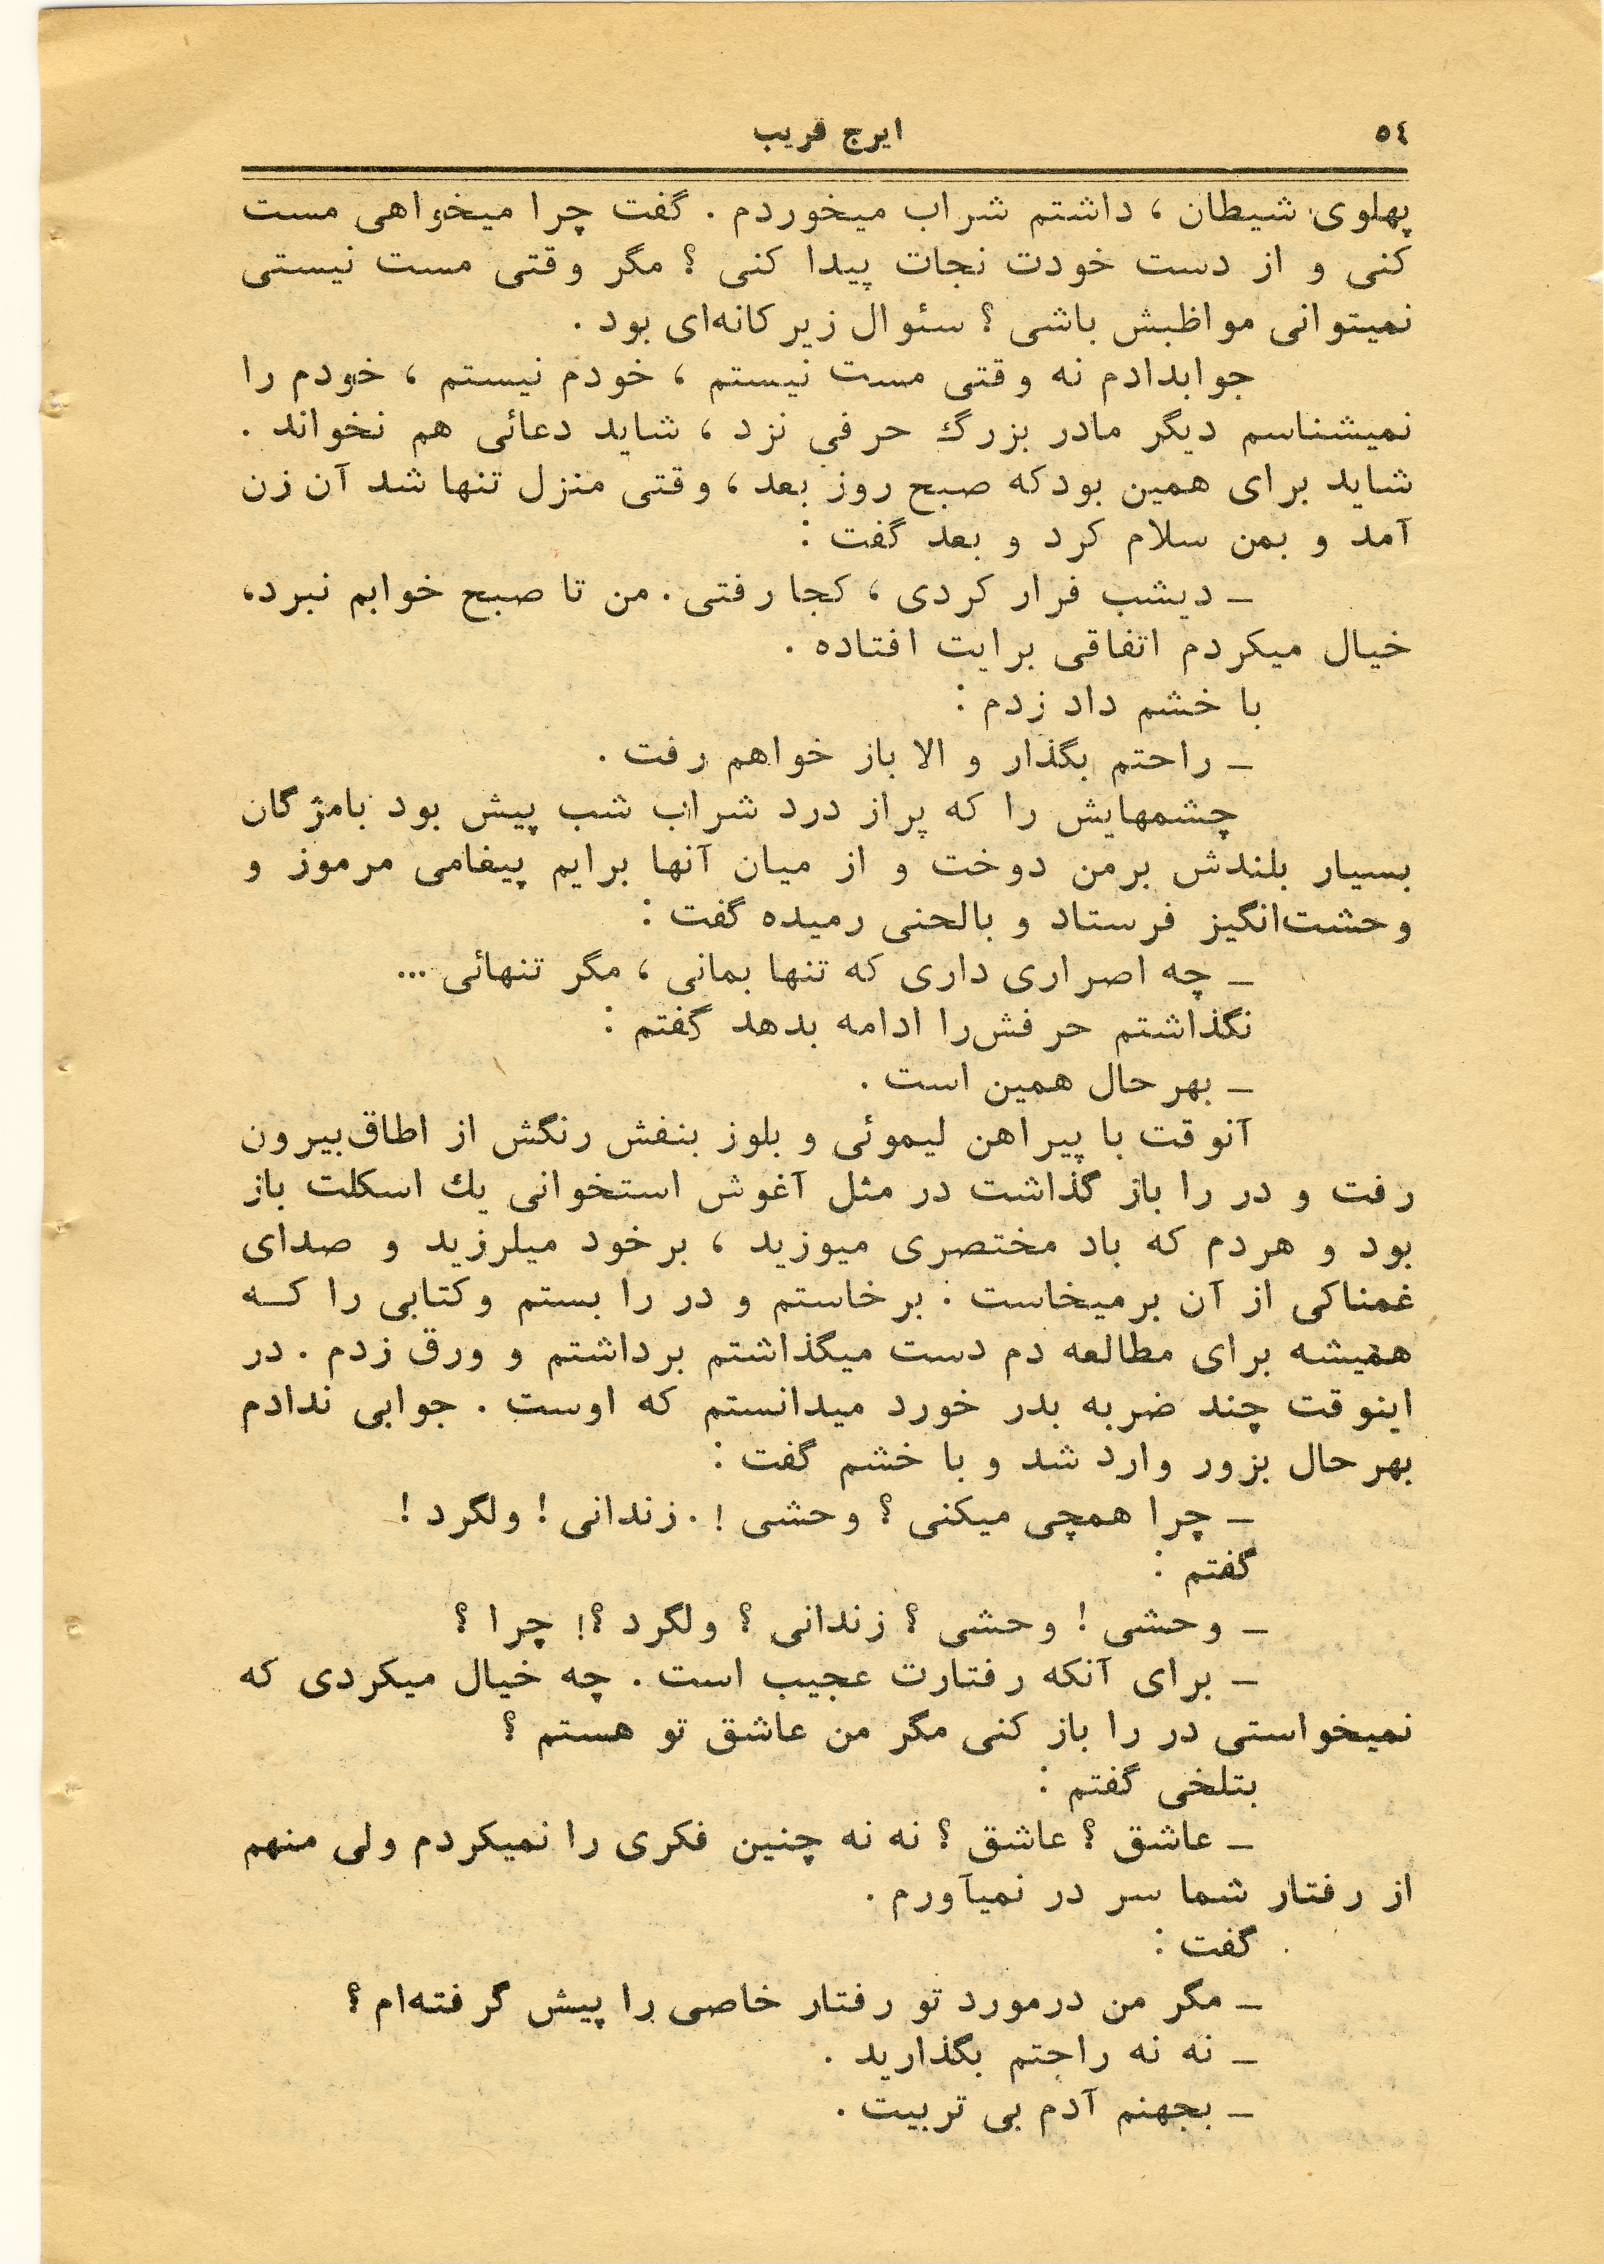 ٥٤
ایرج قریب
پهلوی شیطان ، داشتم شراب میخوردم . گفت چرا میخواهی مست
کنی و از دست خودت نجات پیدا کنی ؟ مگر وقتی مست نیستی
نمیتوانی مواظبش باشی ؟ سئوال زیرکانه‌ای بود .
جوابدادم نه وقتی مست نیستم ، خودم نیستم ، خودم را
نمیشناسم دیگر مادر بزرگ حرفی نزد ، شاید دعائی هم نخواند .
شاید برای همین بودکه صبح روز بعد ، وقتی منزل تنها شد آن زن
آمد و بمن سلام کرد و بعد گفت :
ــ دیشب فرار کردی ، کجا رفتی . من تا صبح خوابم نبرد،
خیال میکردم اتفاقی برایت افتاده .
با خشم داد زدم :
ــ راحتم بگذار و الا باز خواهم رفت .
چشمهایش را که پراز درد شراب شب پیش بود بامژگان
بسیار بلندش برمن دوخت و از میان آنها برایم پیغامی مرموز و
وحشت‌انگیز فرستاد و بالحنی رمیده گفت :
ــ چه اصراری داری که تنها بمانی ، مگر تنهائی ...
نگذاشتم حرفش‌را ادامه بدهد گفتم :
ــ بهرحال همین است .
آنوقت با پیراهن لیموئی و بلوز بنفش رنگش از اطاق‌بیرون
رفت و در را باز گذاشت در مثل آغوش استخوانی یك اسکلت باز
بود و هردم که باد مختصری میوزید ، برخود میلرزید و صدای
غمناکی از آن برمیخاست . برخاستم و در را بستم و کتابی را کـه
همیشه برای مطالعه دم دست میگذاشتم برداشتم و ورق زدم . در
اینوقت چند ضربه بدر خورد میدانستم که اوست . جوابی ندادم
بهرحال بزور وارد شد و با خشم گفت :
ــ چرا همچی میکنی ؟ وحشی ! . زندانی ! ولگرد !
گفتم :
ــ وحشی ! وحشی ؟ زندانی ؟ ولگرد ؟! چرا ؟
ــ برای آنکه رفتارت عجیب است . چه خیال میکردی که
نمیخواستی در را باز کنی مگر من عاشق تو هستم ؟
بتلخی گفتم :
ــ عاشق ؟ عاشق ؟ نه نه چنین فکری را نمیکردم ولی منهم
از رفتار شما سر در نمیآورم .
گفت :
ــ مگر من درمورد تو رفتار خاصی را پیش گرفته‌ام ؟
ــ نه نه راحتم بگذارید .
ــ بجهنم آدم بی تربیت .